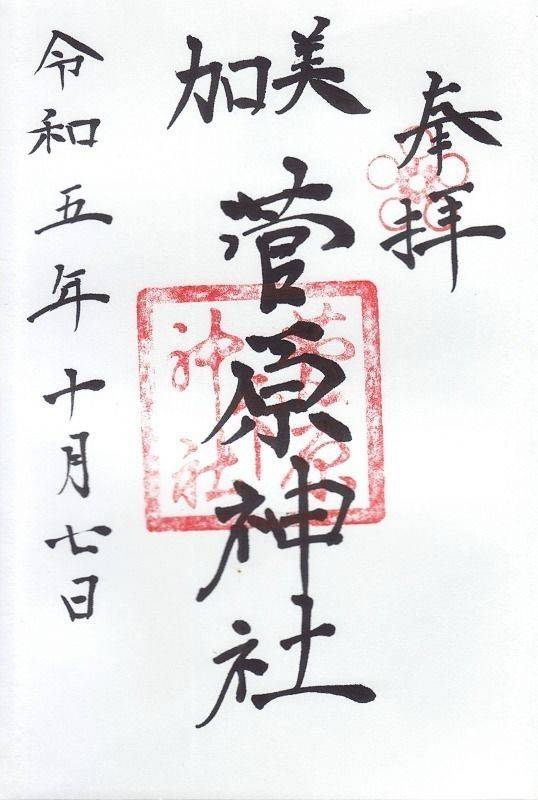 奉拝
加美
菅原神社
令和五年十月七日
神社